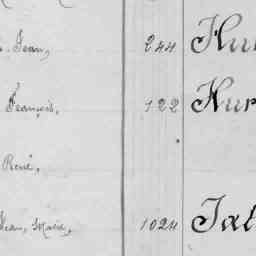 Jean, 244 Hu
François, 122 Hur
René,
Jean, Marie, 1024 Jal